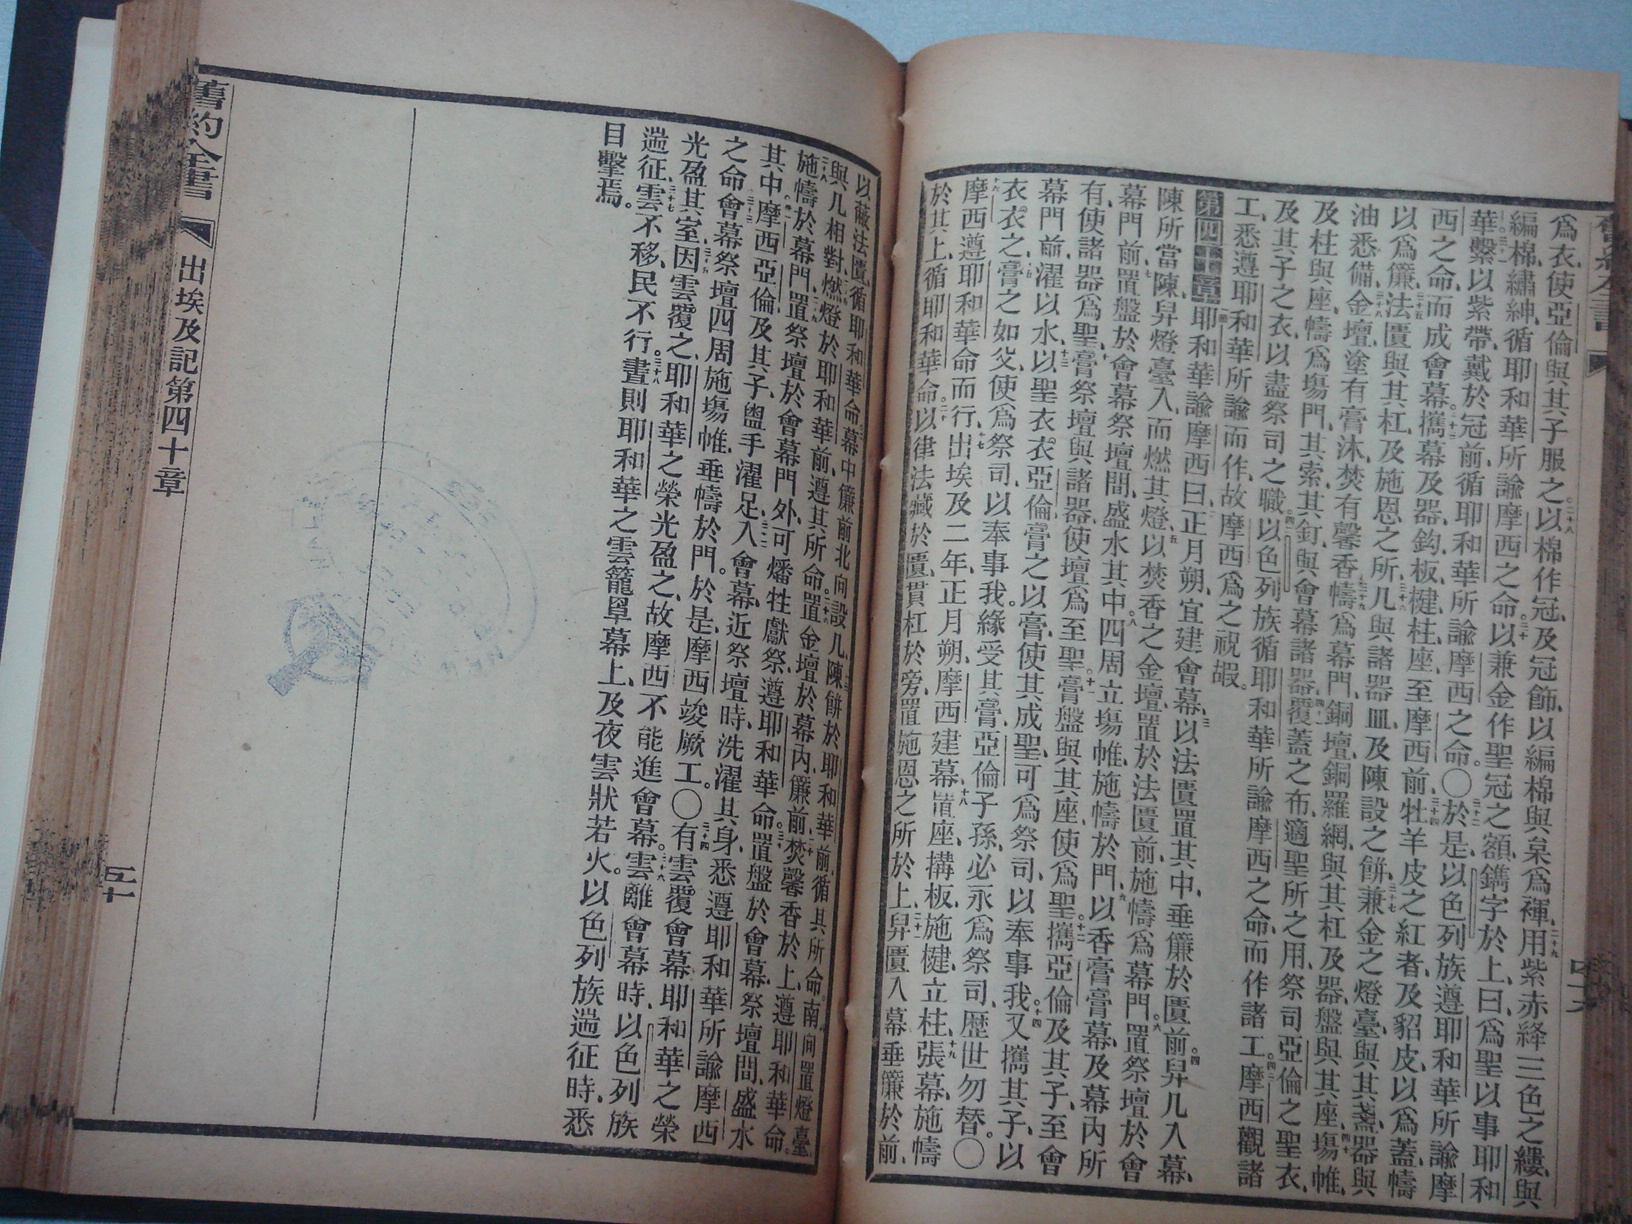 爲衣、使亞倫與其子服之、二十八以棉作冠、及冠飾、以編棉與枲爲褌、二十九用紫赤絳三色之縷、與
編棉繡紳、循耶和華所諭摩西之命、三十以兼金作聖冠之額、鐫字於上、曰、爲聖以事耶和
華、三一繫以紫帶、戴於冠前、循耶和華所諭摩西之命。○三十二於是以色列族遵耶和華所諭摩
西之命、而成會幕。三十三攜幕及器、鈎、板、楗、柱、座、至摩西前、三十四牡羊皮之紅者、及貂皮、以爲蓋、幬
以爲簾、三十五法匱與其杠、及施恩之所、三十六几與諸器皿、及陳設之餅、三十七兼金之燈臺、與其盞、器、與
油悉備、三十八金壇、塗有膏沐、焚有馨香、幬爲幕門、三十九銅壇、銅羅網、與其杠、及器、盤與其座、四十場帷、
及柱與座、幬爲場門、其索、其釘、與會幕諸器、四十一覆蓋之布、適聖所之用、祭司亞倫之聖衣、
及其子之衣、以盡祭司之職、四二以色列族循耶和華所諭摩西之命、而作諸工。四三摩西觀諸
工、悉遵耶和華所諭而作、故摩西爲之祝嘏。
第四十章 一耶和華諭摩西曰、二正月朔、宜建會幕、三以法匱置其中、垂簾於匱前。四舁几入幕、
陳所當陳、舁燈臺入、而燃其燈、五以焚香之金壇、置於法匱前、施幬爲幕門。六置祭壇於會
幕門前、七置盤於會幕祭壇間、盛水其中。八四周立場帷、施幬於門、九以香膏膏幕、及幕內所
有、使諸器爲聖、十膏祭壇與諸器、使壇爲至聖。十一膏盤與其座、使爲聖。十二攜亞倫及其子、至會
幕門前、濯以水、十三以聖衣衣亞倫、膏之、以膏、使其成聖、可爲祭司、以奉事我。十四又攜其子、以
衣衣之、十五膏之如父、使爲祭司、以奉事我。緣受其膏、亞倫子孫、必永爲祭司、歷世勿替。○
十六摩西遵耶和華命而行、十七出埃及二年正月朔、摩西建幕、十八諸座、搆板、施楗、立柱、十九張幕、施幬
於其上、循耶和華命、二十以律法藏於匱、貫杠於旁、置施恩之所於上、二十一舁匱入幕、垂簾於前、
以蔽法匱、循耶和華命、二十二幕中簾前北向設几、二十三陳餅於耶和華前、循其所命、二十四南向置燈臺、
與几相對、二十五燃燈於耶和華前、遵其所命。二十六置金壇於幕內簾前、二十七焚馨香於上、遵耶和華命、
二十八施幬於幕門、二十九置祭壇於會幕門外、可燔牲獻祭、遵耶和華命。三十置盤於會幕祭壇間、盛水
其中、三十一摩西亞倫、及其子、盥手濯足、三十二入會幕、近祭壇時、洗濯其身、悉遵耶和華所諭摩西
之命、三十三會幕祭壇、四周施場帷、垂幬於門。於是摩西竣厥工。○三十四有雲覆會幕、耶和華之榮
光盈其室、三十五因雲覆之、耶和華之榮光盈之、故摩西不能進會幕。三十六雲離會幕時、以色列族
遄征、三十七雲不移、民不行、三十八晝則耶和華之雲籠罩幕上、及夜雲狀若火、以色列族遄征時、悉
目擊焉。
舊約全書 出埃及記第四十章 五十